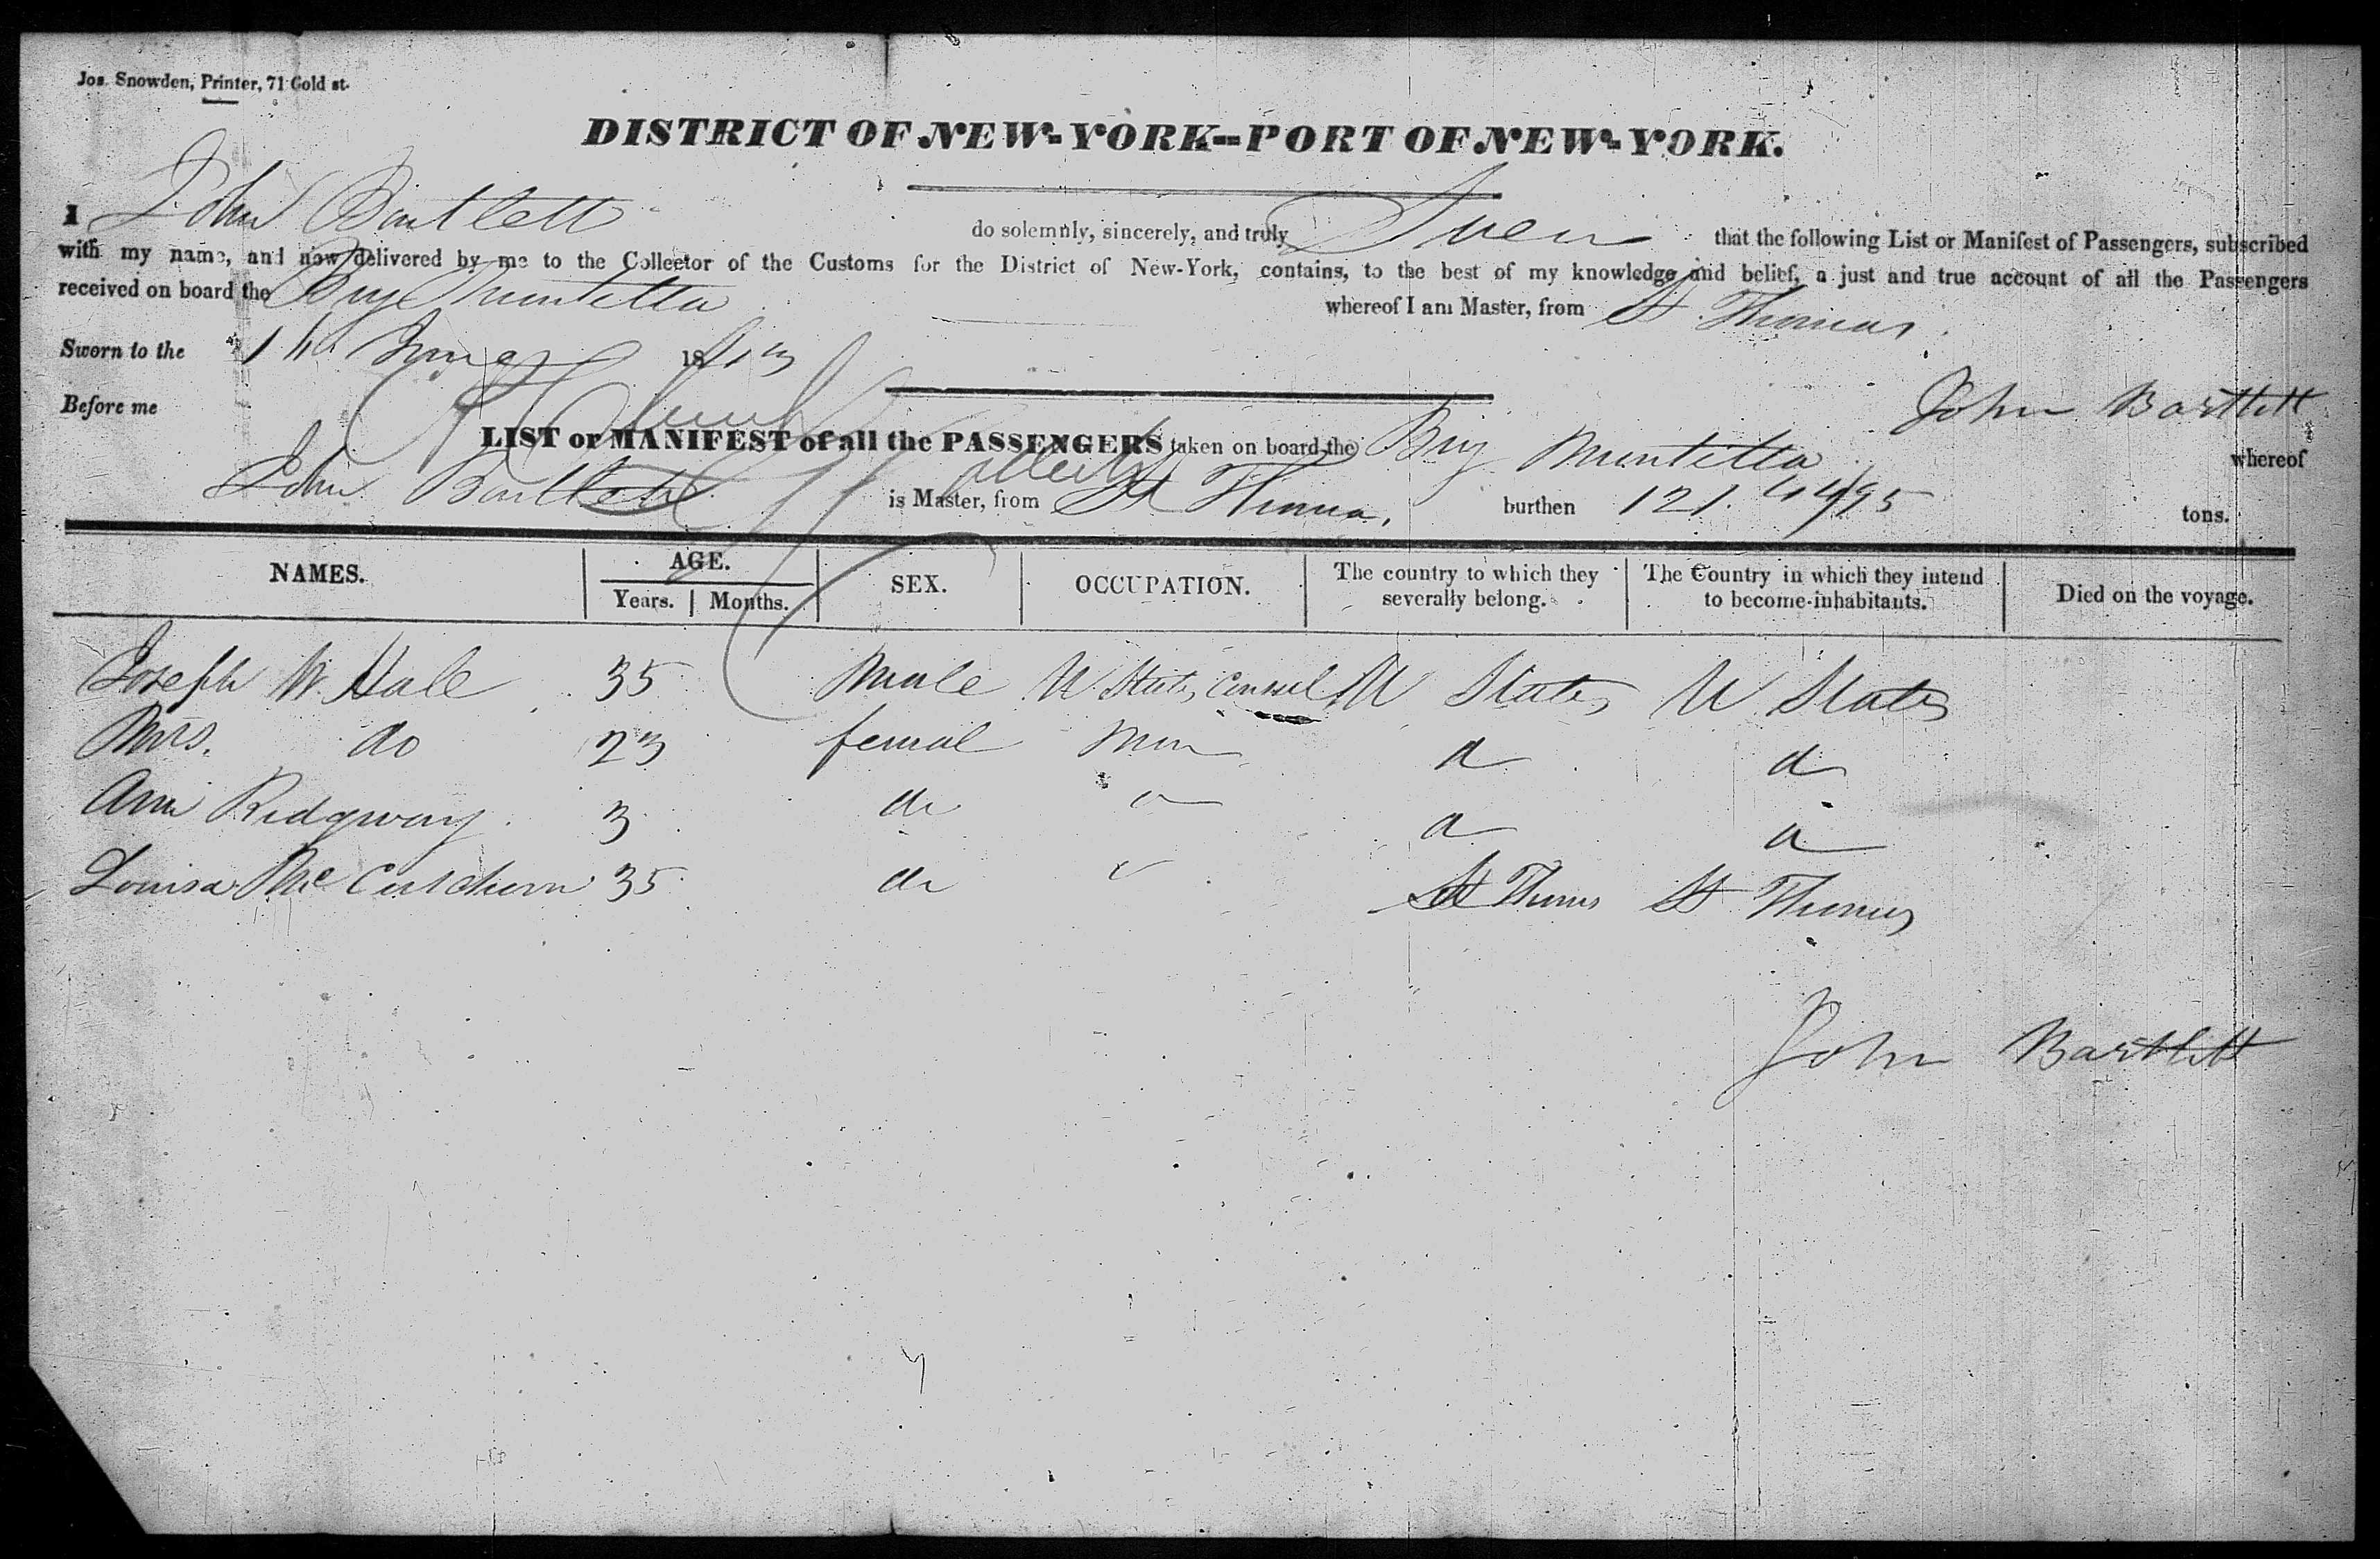 Jos. Snowden, Printer, 71 Gold st.
DISTRICT OF NEW-YORK--PORT OF NEW-YORK.
I John Bartlett do solemnly, sincerely, and truly Swear that the following List or Manifest of Passengers, subscribed
with my name, and now delivered by me to the Collector of the Customs for the District of New-York, contains, to the best of my knowledge and belief, a just and true account of all the Passengers
received on board the Brig whereof I am Master, from St Thomas.
Sworn to the 18
Before me
John Bartlett
LIST or MANIFEST of all the PASSENGERS taken on board the Brig whereof
John Bartlett is Master, from St Thomas, burthen 121 /95 tons.
NAMES. AGE. SEX. OCCUPATION. The country to which they severally belong. The Country in which they intend to become inhabitants. Died on the voyage.
Years. Months.
Joseph W. Hale 35 Male U States Consul U States U States
Mrs. do 23 femal
Ann Ridgway 3 do
Louisa Mc Cutchern 35 do St Thomas St Thomas
John Bartlett